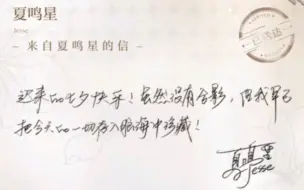 夏鸣星
Jesse
~ 来自夏鸣星的信 ~
已寄达
迟来的七夕快乐！虽然没有合影，但我早已
把今天的一切存入脑海中珍藏！
夏鸣星
Jesse